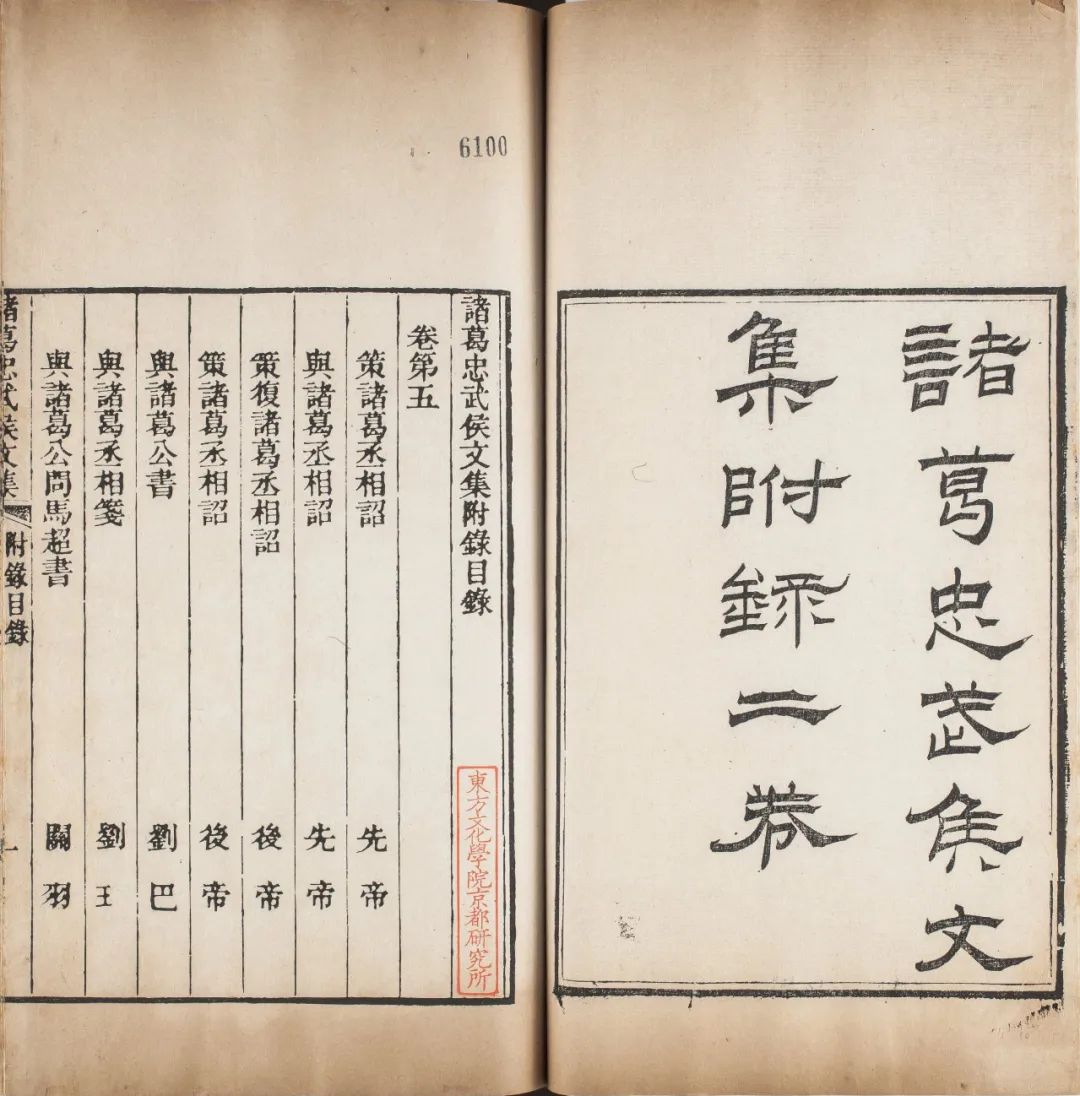 諸葛忠武侯文
集附録二卷
6100
諸葛忠武侯文集附錄目錄
東方文化學院京都研究所
卷第五
策諸葛丞相詔 先帝
與諸葛丞相詔 先帝
策復諸葛丞相詔 後帝
策諸葛丞相詔 後帝
與諸葛公書 劉巴
與諸葛丞相箋 劉王
與諸葛公問馬超書 關羽
諸葛忠武侯文集 附錄目錄 一